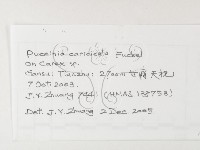 Puccinia caricicola Fuckel
on Carex sp.
Gansu: Tianzhu: 2700m 甘肃天祝
7 Oct 2003.
J.Y. Zhuang (HMAS 138758)
Det. J.Y. Zhuang 2 Dec 2005